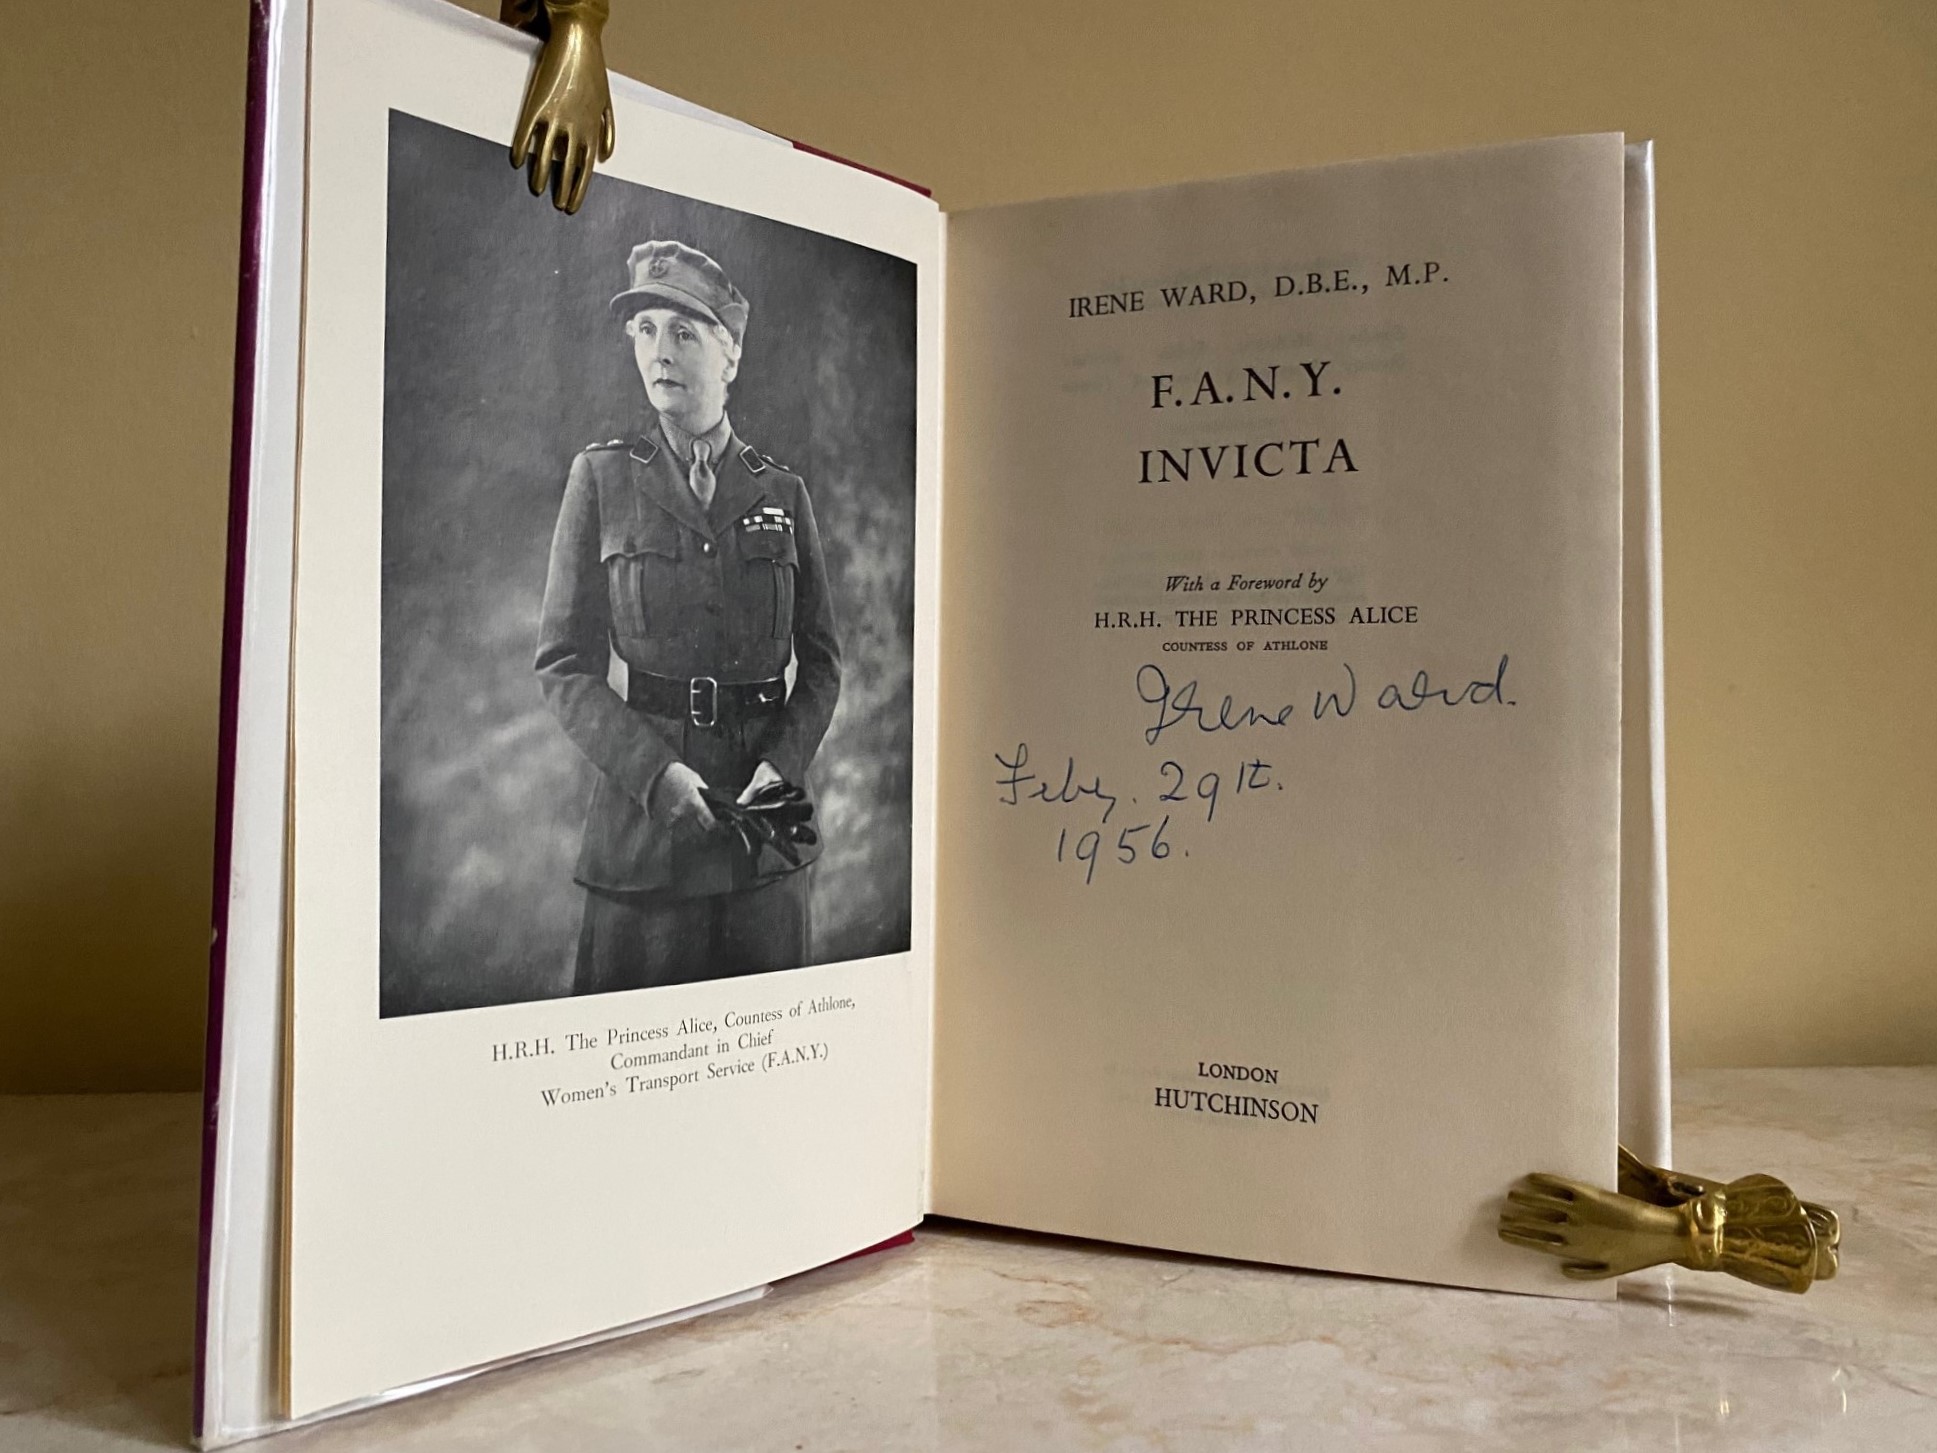 H.R.H. The Princess Alice, Countess of Athlone,
Commandant in Chief
Women's Transport Service (F.A.N.Y.)
IRENE WARD, D.B.E., M.P.
F.A.N.Y.
INVICTA
With a Foreword by
H.R.H. THE PRINCESS ALICE
COUNTESS OF ATHLONE
Irene Ward.
Feby. 29th.
1956.
LONDON
HUTCHINSON